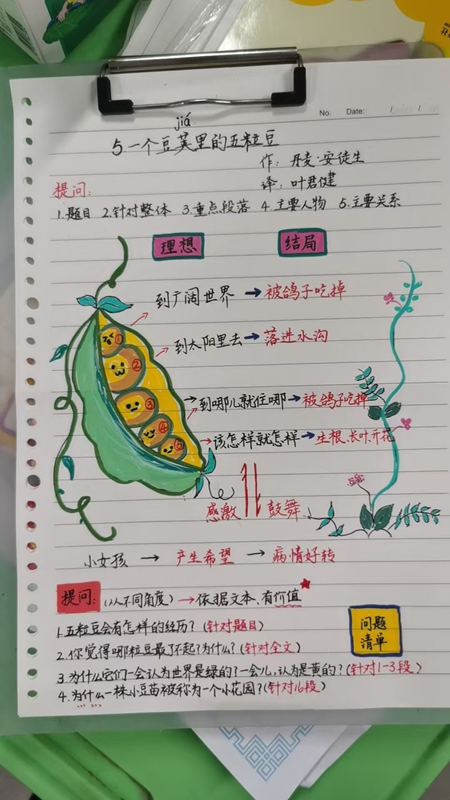 No. Date:
jiá
5 一个豆荚里的五粒豆
作: 丹麦·安徒生
译: 叶君健
提问:
1.题目 2.针对整体 3.重点段落 4.主要人物 5.主要关系
理想 结局
到广阔世界 → 被鸽子吃掉
到太阳里去 → 落进水沟
到哪儿就住哪 → 被鸽子吃掉
该怎样就怎样 → 生根、长叶、开花
① ② ③ ④ ⑤
感激 鼓舞
小女孩 → 产生希望 → 病情好转
提问: (从不同角度) → 依据文本,有价值
问题清单
1.五粒豆会有怎样的经历?(针对题目)
2.你觉得哪粒豆最了不起?为什么?(针对全文)
3.为什么它们一会认为世界是绿的?一会儿,认为是黄的?(针对1-3段)
4.为什么一株小豆苗被称为一个小花园?(针对16段)